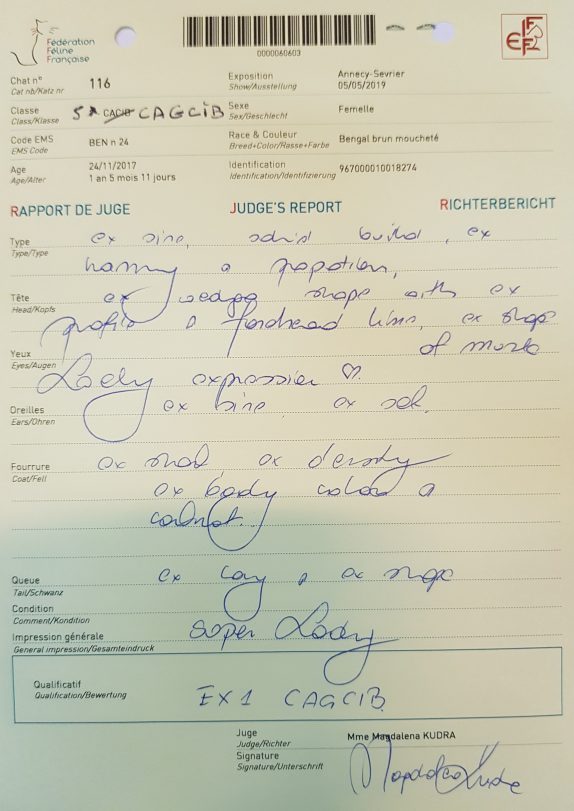 Fédération
Féline
Française
0000060603
FIFE
Chat n° 116
Cat nb/Katz nr
Exposition Annecy-Sevrier
Show/Ausstellung 05/05/2019
Classe 5 CACIB CAGCIB
Class/Klasse
Sexe Femelle
Sex/Geschlecht
Code EMS BEN n 24
EMS Code
Race & Couleur Bengal brun moucheté
Breed+Color/Rasse+Farbe
Age 24/11/2017
Age/Alter 1 an 5 mois 11 jours
Identification 967000010018274
Identification/Identifizierung
RAPPORT DE JUGE JUDGE'S REPORT RICHTERBERICHT
Type ex size, solid build, ex
Type/Type
Tête ex wedge shape with ex
Head/Kopfs
profile & forehead line, ex shape
of
Yeux
Eyes/Augen
Lady expression ♡
Oreilles ex size, ex set.
Ears/Ohren
Fourrure ex ex density
Coat/Fell
ex body color &
contrast
Queue ex & ex shape
Tail/Schwanz
Condition
Comment/Kondition
Impression générale super Lady
General impression/Gesamteindruck
Qualificatif
Qualification/Bewertung
EX1 CAGCIB
Juge Mme Magdalena KUDRA
Judge/Richter
Signature
Signature/Unterschrift
Magdalena Kudra